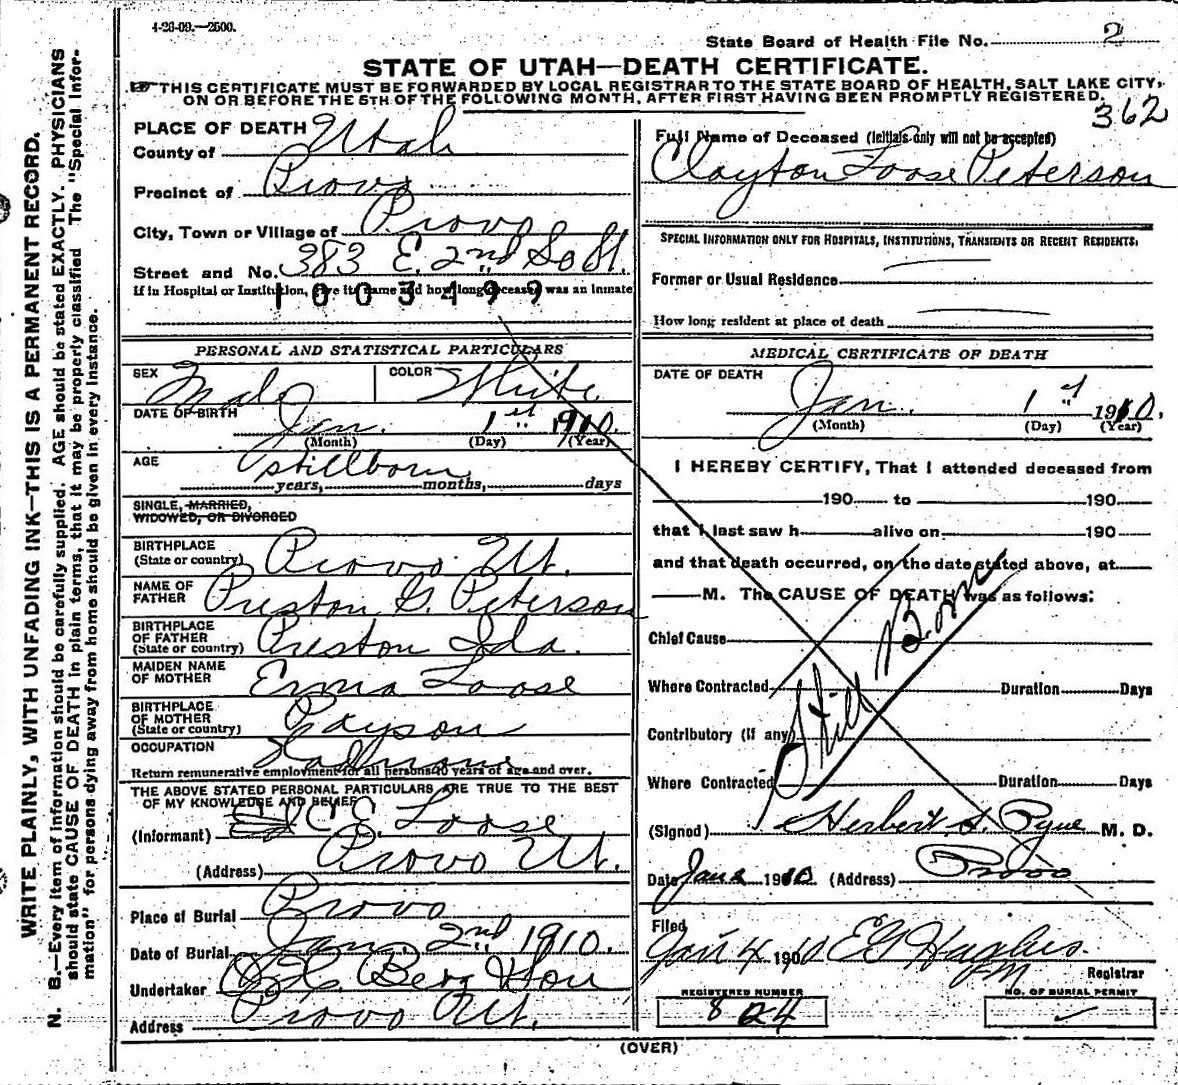 4-26-09.—2500.
State Board of Health File No. 2
STATE OF UTAH—DEATH CERTIFICATE.
THIS CERTIFICATE MUST BE FORWARDED BY LOCAL REGISTRAR TO THE STATE BOARD OF HEALTH, SALT LAKE CITY,
ON OR BEFORE THE 5TH OF THE FOLLOWING MONTH, AFTER FIRST HAVING BEEN PROMPTLY REGISTERED.
362
WRITE PLAINLY, WITH UNFADING INK—THIS IS A PERMANENT RECORD.
N. B.—Every item of information should be carefully supplied. AGE should be stated EXACTLY. PHYSICIANS
should state CAUSE OF DEATH in plain terms, that it may be properly classified. The "Special Infor-
mation" for persons dying away from home should be given in every instance.
PLACE OF DEATH
County of Utah
Precinct of Provo
City, Town or Village of Provo
Street and No. 383 E. 2nd So St.
If in Hospital or Institution, give its name and how long deceased was an inmate
1003499
PERSONAL AND STATISTICAL PARTICULARS
SEX Male COLOR White
DATE OF BIRTH Jan. 1st 1910.
(Month) (Day) (Year)
AGE Stillborn
years, months, days
SINGLE, MARRIED,
WIDOWED, OR DIVORCED
BIRTHPLACE
(State or country) Provo Ut.
NAME OF
FATHER Preston G. Peterson
BIRTHPLACE
OF FATHER
(State or country) Preston Ida.
MAIDEN NAME
OF MOTHER Erma Loose
BIRTHPLACE
OF MOTHER
(State or country) Payson
OCCUPATION
Return remunerative employment for all persons 10 years of age and over.
THE ABOVE STATED PERSONAL PARTICULARS ARE TRUE TO THE BEST
OF MY KNOWLEDGE AND BELIEF
(Informant) C. E. Loose
(Address) Provo Ut.
Place of Burial Provo
Date of Burial Jan. 2nd 1910.
Undertaker Berg & Son
Address Provo Ut.
Full Name of Deceased (Initials only will not be accepted)
Clayton Loose Peterson
SPECIAL INFORMATION ONLY FOR HOSPITALS, INSTITUTIONS, TRANSIENTS OR RECENT RESIDENTS.
Former or Usual Residence
How long resident at place of death
MEDICAL CERTIFICATE OF DEATH
DATE OF DEATH
Jan. 1st 1910.
(Month) (Day) (Year)
I HEREBY CERTIFY, That I attended deceased from
190 to 190
that I last saw h alive on 190
and that death occurred, on the date stated above, at
M. The CAUSE OF DEATH was as follows:
Still Born
Chief Cause
Where Contracted Duration Days
Contributory (if any)
Where Contracted Duration Days
(Signed) Herbert S. Pyne M. D.
Date Jan 2 1910 (Address) Provo
Filed
Jan 4 1910 E G Hughes
Registrar
REGISTERED NUMBER
824
NO. OF BURIAL PERMIT
(OVER)